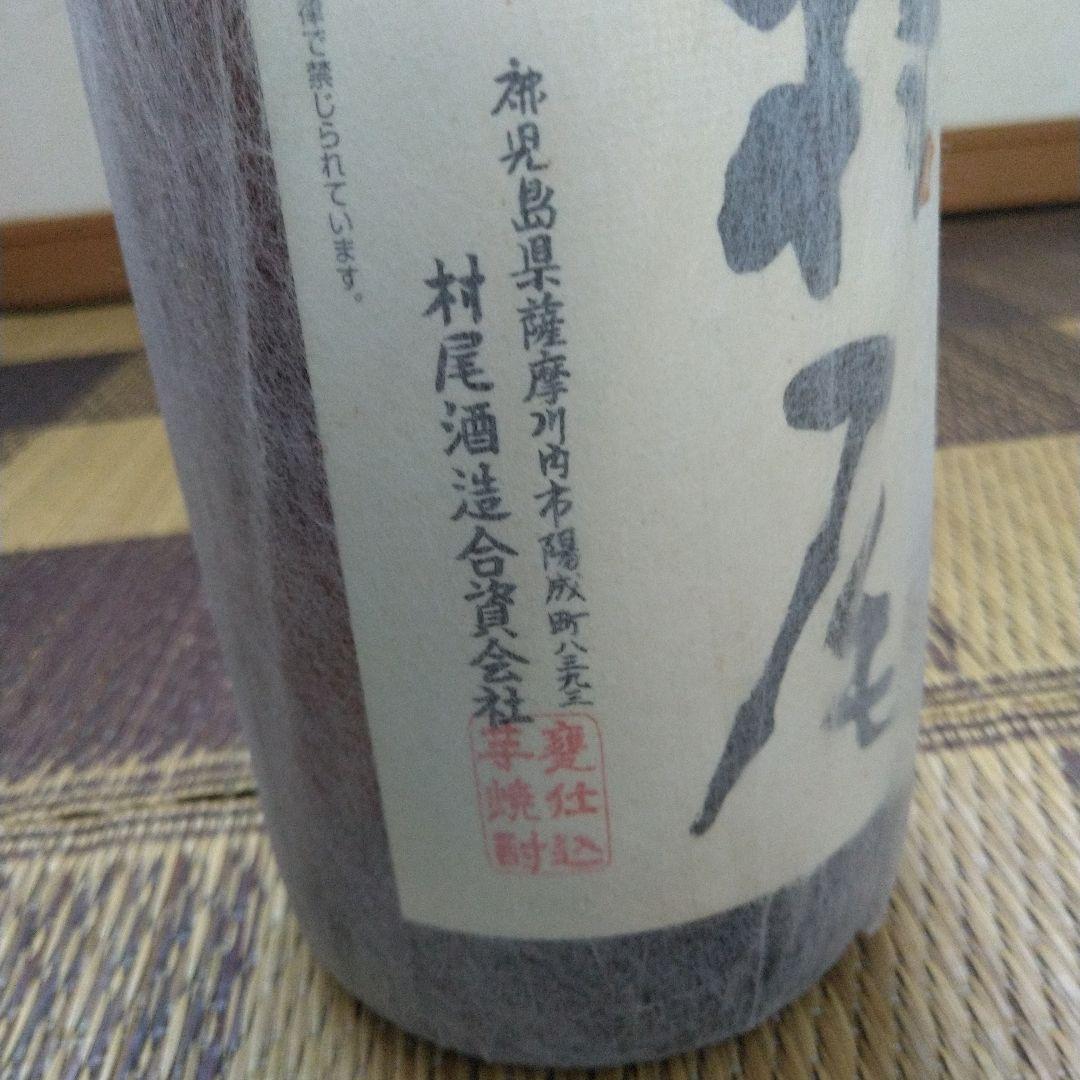 村尾
鹿児島県薩摩川内市陽成町八三九三
村尾酒造合資会社
甕仕込
芋焼酎
律で禁じられています。